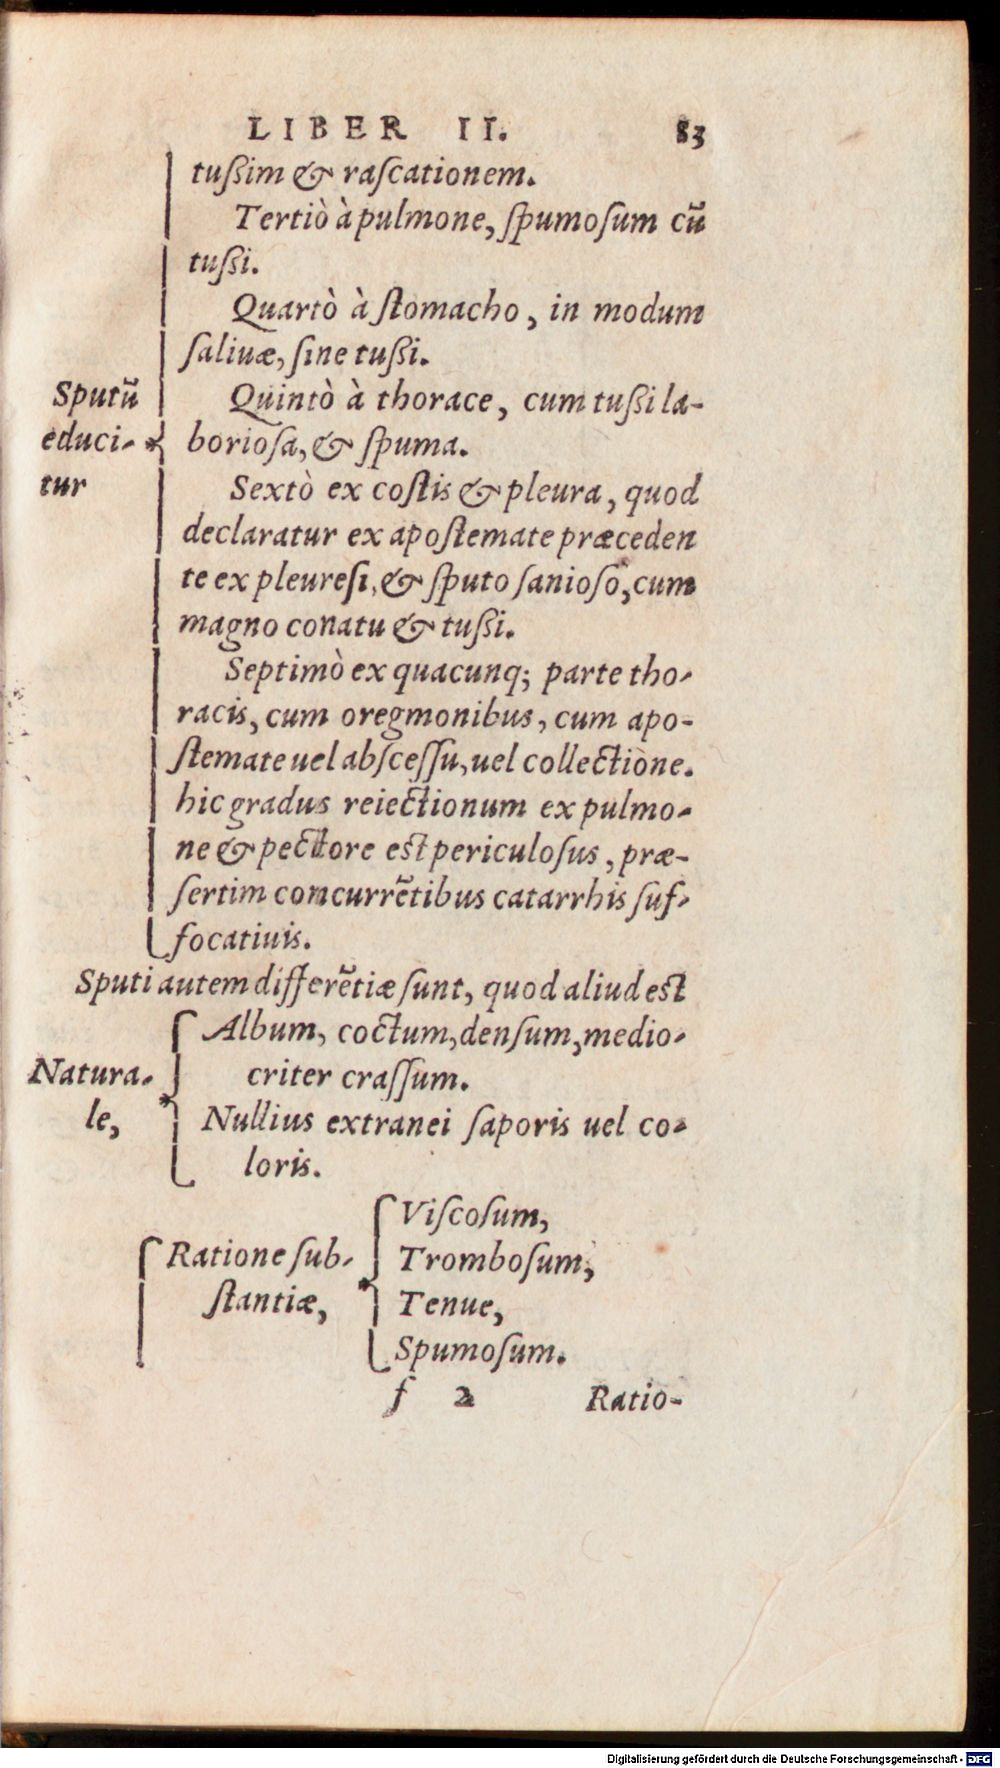 LIBER II. 83
tußim & raſcationem.
Tertiò à pulmone, ſpumoſum cū
tußi.
Quartò à ſtomacho, in modum
ſaliuæ, ſine tußi.
Sputū
educi-
tur
Quintò à thorace, cum tußi la-
borioſa, & ſpuma.
Sextò ex coſtis & pleura, quod
declaratur ex apoſtemate præceden
te ex pleureſi, & ſputo ſanioſo, cum
magno conatu & tußi.
Septimò ex quacunq; parte tho-
racis, cum oregmonibus, cum apo-
ſtemate uel abſceſſu, uel collectione.
hic gradus reiectionum ex pulmo-
ne & pectore est periculoſus, præ-
ſertim concurrētibus catarrhis ſuf-
focatiuis.
Sputi autem differētiæ ſunt, quod aliud est
Natura-
le,
Album, coctum, denſum, medio-
criter craſſum.
Nullius extranei ſaporis uel co-
loris.
Ratione ſub-
ſtantiæ,
Viſcoſum,
Tromboſum,
Tenue,
Spumoſum.
f 2 Ratio-
Digitalisierung gefördert durch die Deutsche Forschungsgemeinschaft - DFG